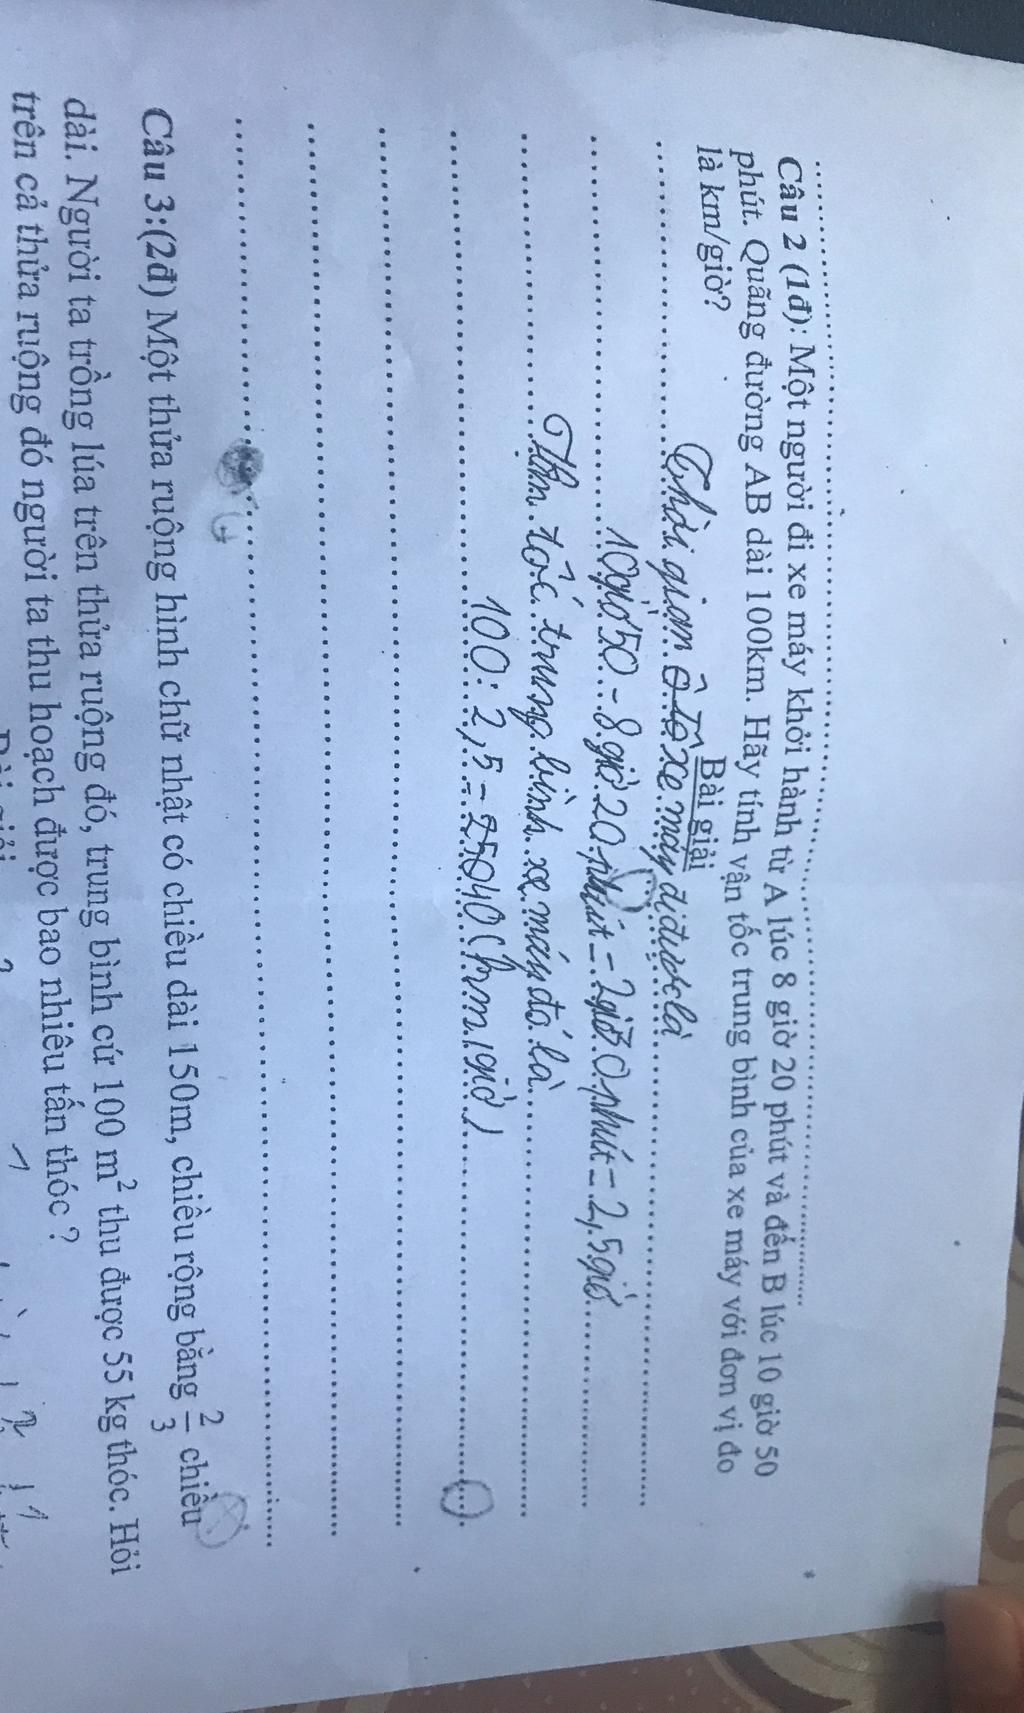 Câu 2 (1đ): Một người đi xe máy khởi hành từ A lúc 8 giờ 20 phút và đến B lúc 10 giờ 50
phút. Quãng đường AB dài 100km. Hãy tính vận tốc trung bình của xe máy với đơn vị đo
là km/giờ?
Bài giải
Thời gian ô tô xe máy đi được là
10giờ 50 - 8 giờ 20 phút = 2giờ 30 phút = 2,5 giờ
tốc trung bình xe máy đó là
100 : 2,5 = 25040 (km/giờ)
Câu 3:(2đ) Một thửa ruộng hình chữ nhật có chiều dài 150m, chiều rộng bằng 2/3 chiều
dài. Người ta trồng lúa trên thửa ruộng đó, trung bình cứ 100 m² thu được 55 kg thóc. Hỏi
trên cả thửa ruộng đó người ta thu hoạch được bao nhiêu tấn thóc ?